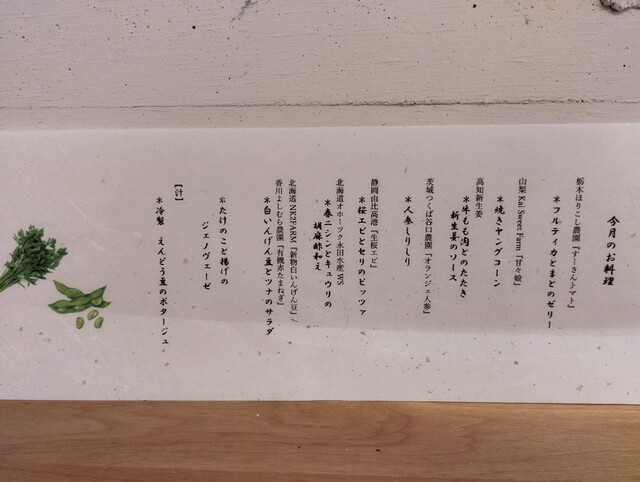 今月のお料理
栃木ほりこし農園『すーさんトマト』
＊フルティカとまとのゼリー
山梨 Kai Sweet Farm『甘々娘』
＊焼きヤングコーン
高知新生姜
＊牛もも肉とのたたき
新生姜のソース
茨城つくば谷口農園『オランジェ人参』
＊人参しりしり
静岡由比高港『生桜エビ』
＊桜エビとセリのピッツァ
北海道オホーツク永田水産WS
＊春ニシンとキュウリの
胡麻酢和え
北海道 NKズFARM『新物白いんげん豆』/
香川よしむら農園『有機赤たまねぎ』
＊白いんげん豆とツナのサラダ
＊たけのこと揚げの
ジェノヴェーゼ
【汁】
＊冷製 えんどう豆のポタージュ